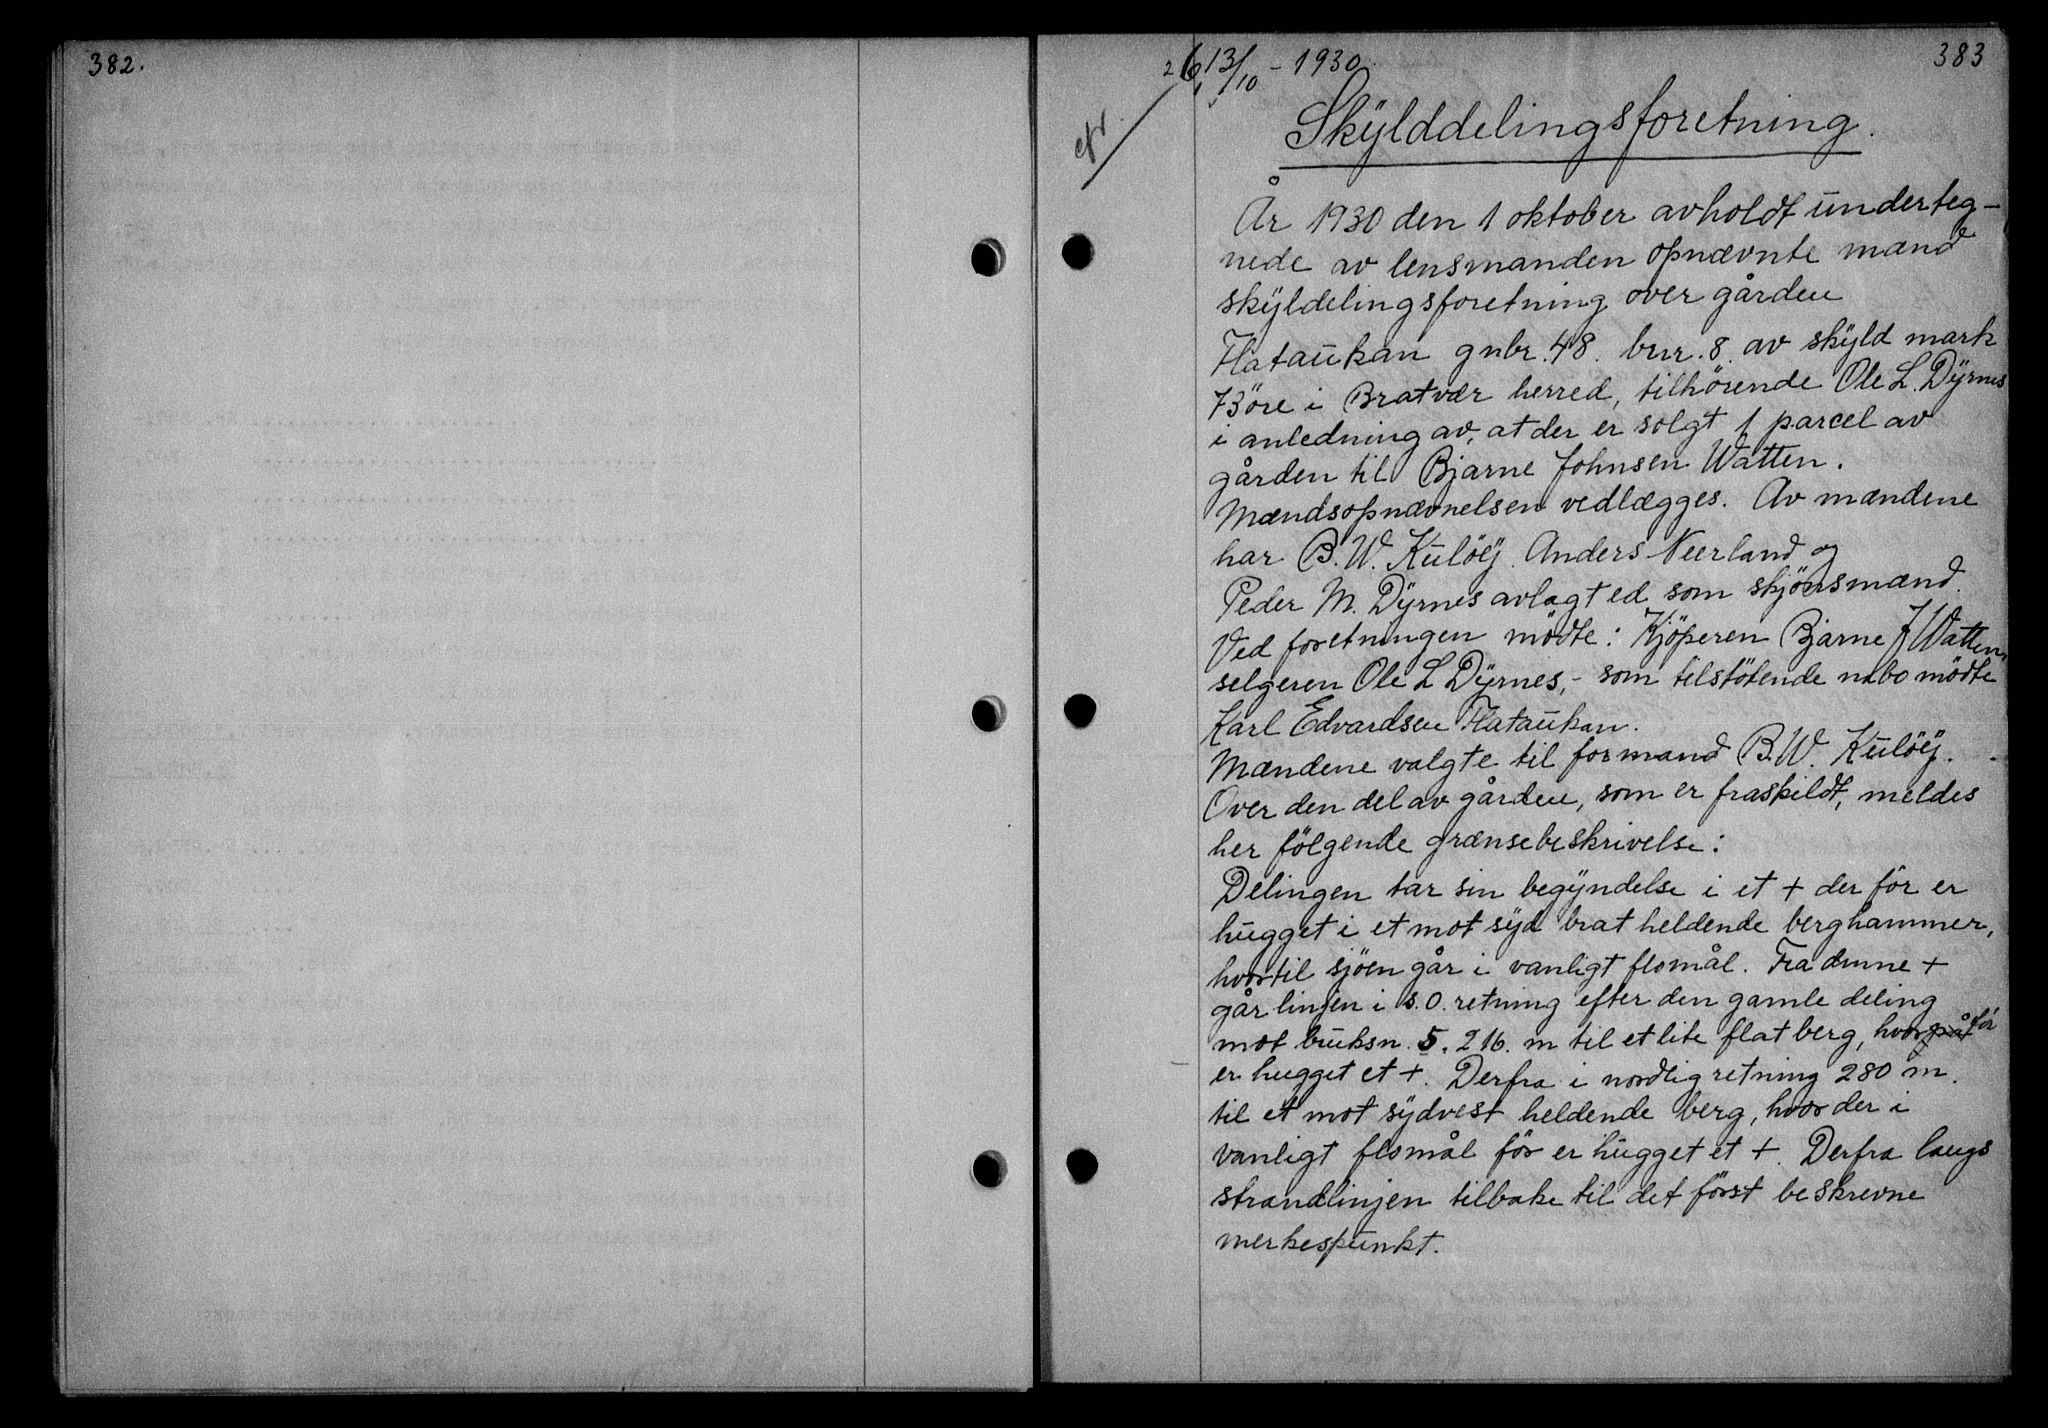 382.
383
26, 13/10 - 1930.
cfr.
Skylddelingsforetning.
År 1930 den 1 oktober avholdt underteg-
nede av lensmanden opnævnte mænd
skyldelingsforetning over gården
Flataukan gnbr. 48. brnr. 8. av skyld mark
73 öre i Bratvær herred, tilhörende Ole L. Dyrnes
i anledning av, at der er solgt 1 parcel av
gården til Bjarne Johnsen Watten.
Mændsopnævnelsen vedlægges. Av mændene
har B. W. Kulöy. Anders Neerland og
Peder M. Dyrnes avlagt ed som skjönsmænd.
Ved foretningen mödte: Kjöperen Bjarne J Watten,
selgeren Ole L Dyrnes, - som tilstötende nabo mödte
Karl Edvardsen Flataukan.
Mændene valgte til formand B. W. Kulöy.
Over den del av gården, som er fraskildt, meldes
her fölgende grænsebeskrivelse:
Delingen tar sin begyndelse i et + der för er
hugget i et mot syd brat heldende berghammer,
hvortil sjöen går i vanligt flomål. Fra denne +
går linjen i s.o. retning efter den gamle deling
mot bruksn. 5. 216. m til et lite flat berg, hvorpå för
er hugget et +. Derfra i nordlig retning 280 m.
til et mot sydvest heldende berg, hvor der i
vanligt flomål för er hugget et +. Derfra langs
strandlinjen tilbake til det först beskrevne
merkespunkt.